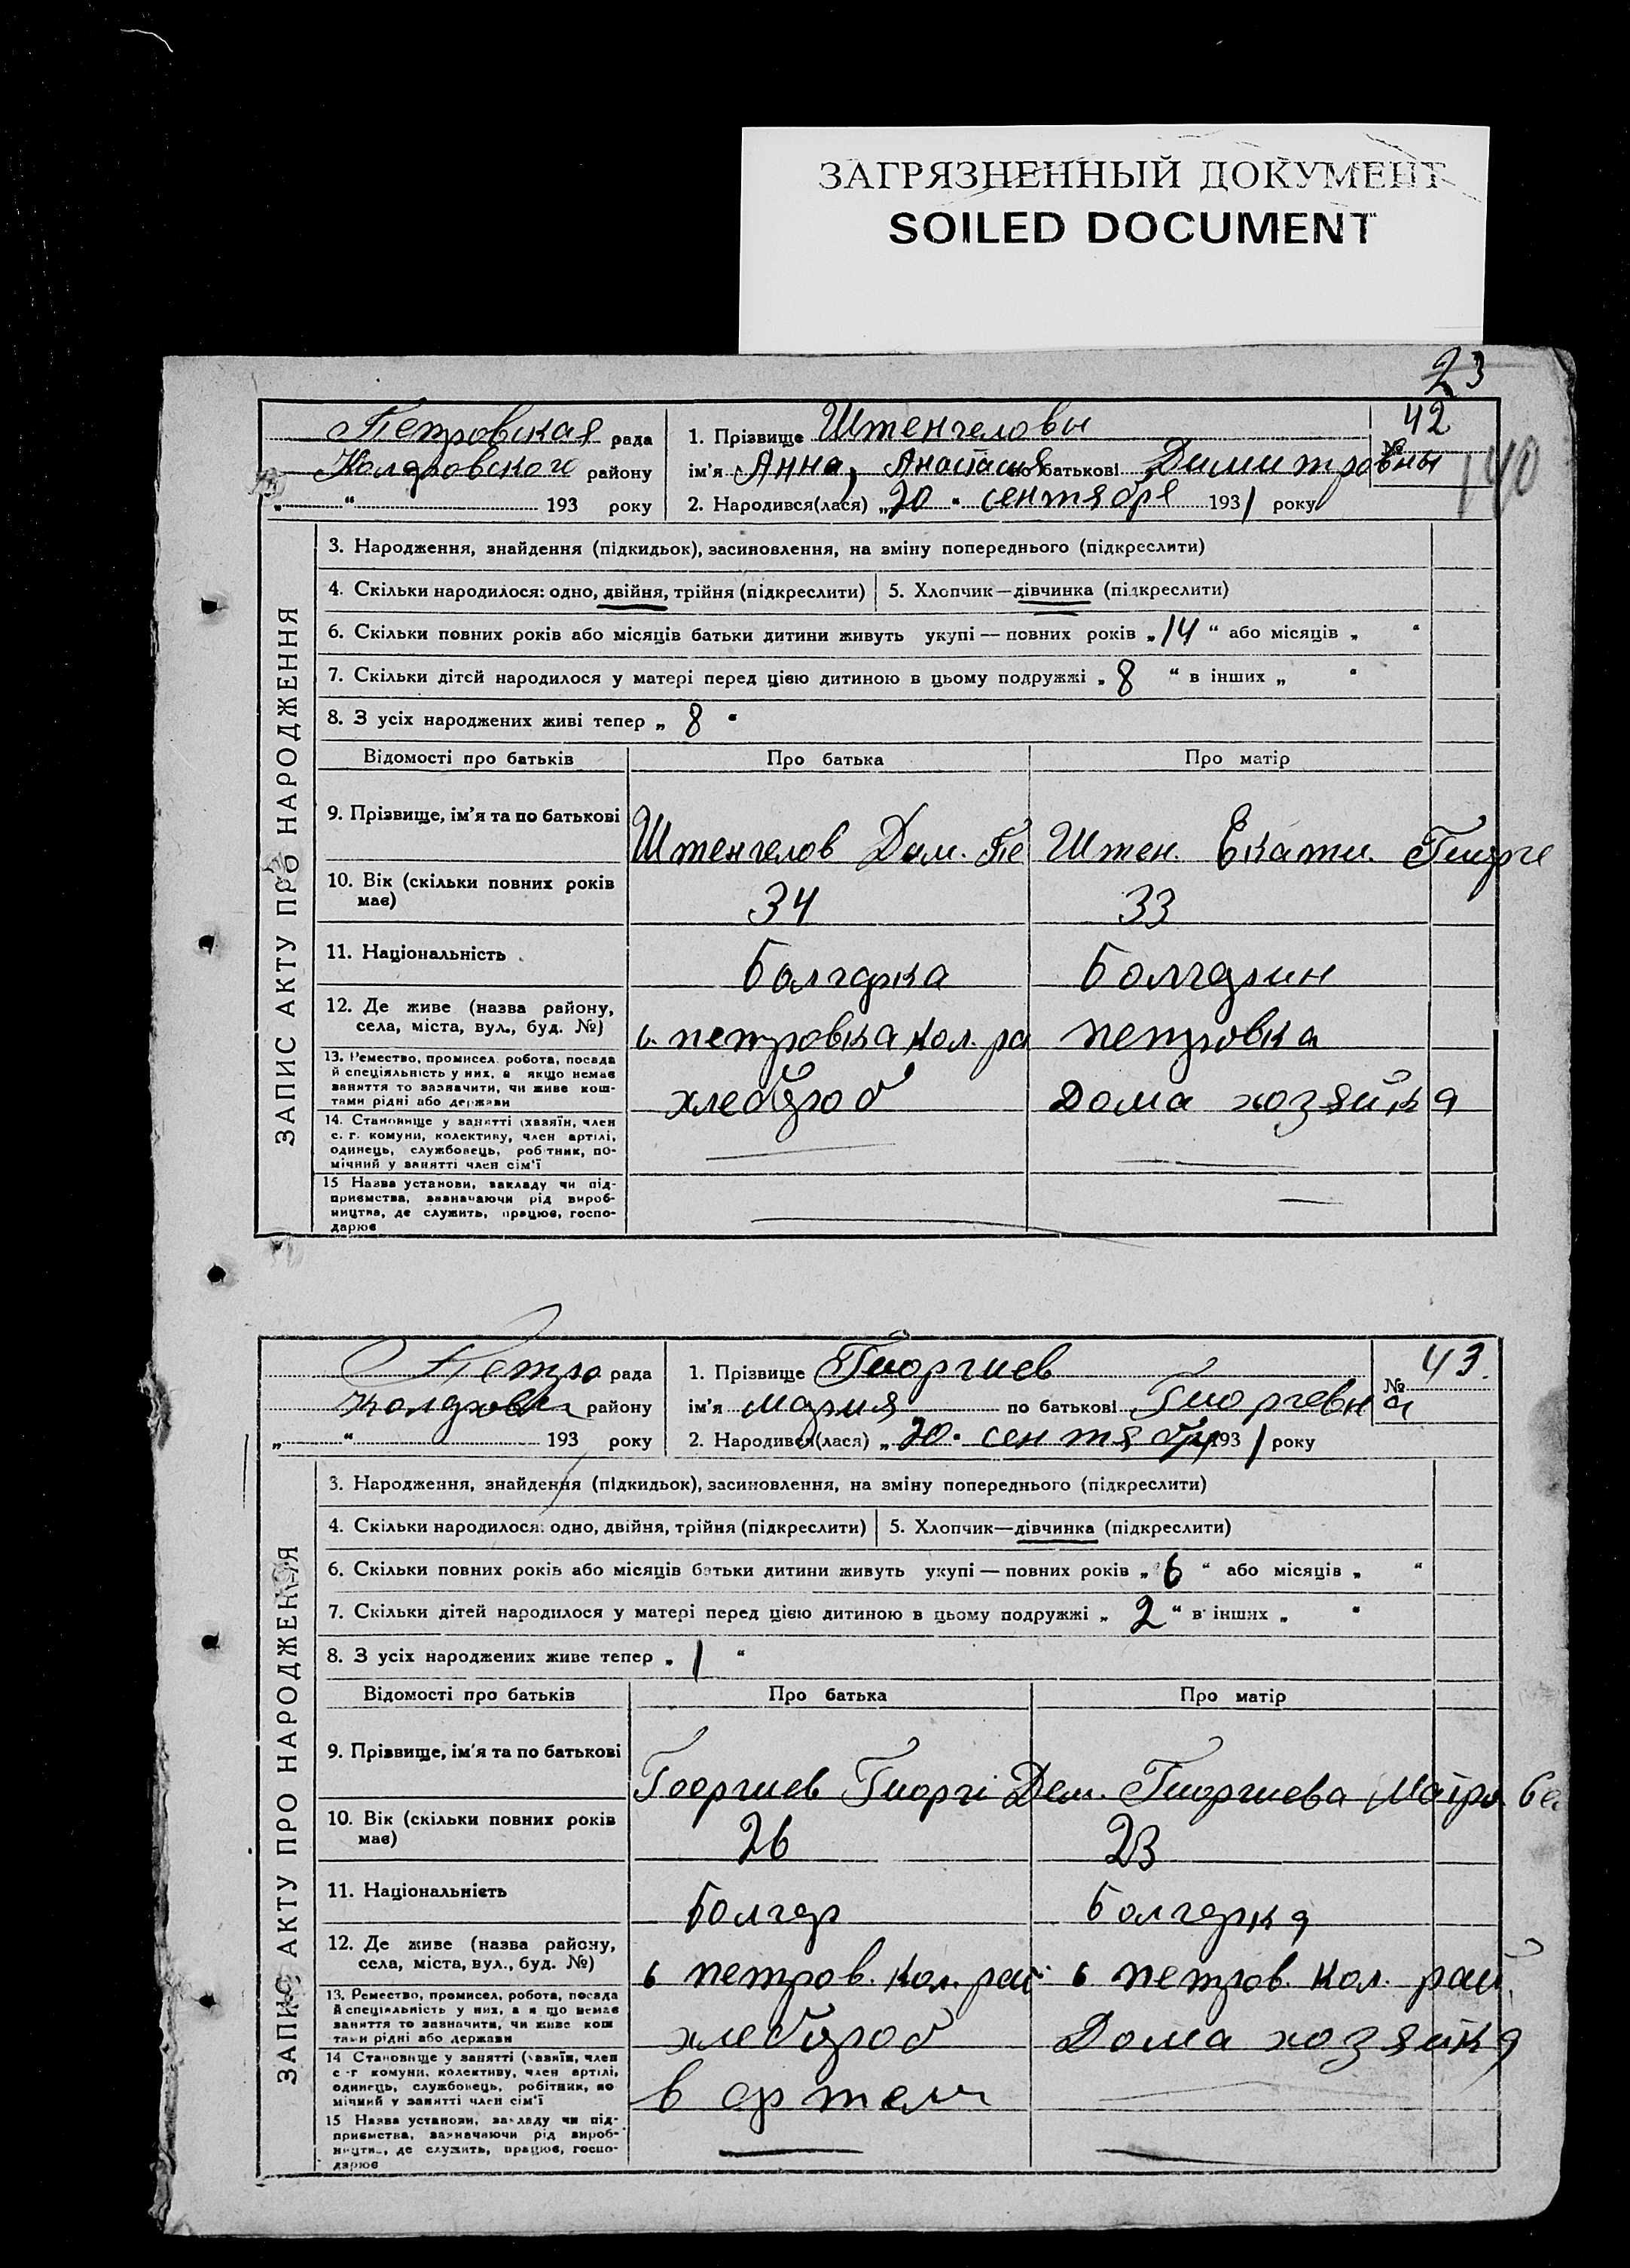 ЗАГРЯЗНЕННЫЙ ДОКУМЕНТ
SOILED DOCUMENT
23
Петровская рада
Коларовского району
„ “ 193 року
1. Прізвище Штенгеловы
ім'я Анна, Анастасия по батькові Димитровны
2. Народився(лася) „20“ сентября 1931 року
42
№
140
ЗАПИС АКТУ ПРО НАРОДЖЕННЯ
3. Народження, знайдення (підкидьок), засиновлення, на зміну попереднього (підкреслити)
4. Скільки народилося: одно, двійня, трійня (підкреслити) 5. Хлопчик—дівчинка (підкреслити)
6. Скільки повних років або місяців батьки дитини живуть укупі — повних років „14“ або місяців „ “
7. Скільки дітей народилося у матері перед цією дитиною в цьому подружжі „8“ в інших „ “
8. З усіх народжених живі тепер „8“
Відомості про батьків Про батька Про матір
9. Прізвище, ім'я та по батькові Штенгелов Дим. Пе Штен. Екати. Гиорге
10. Вік (скільки повних років має) 34 33
11. Національність Болгарка Болгарин
12. Де живе (назва району, села, міста, вул., буд. №) с. петровка кол. ра петровка
13. Ремество, промисел, робота, посада й спеціяльність у них, а якщо немає заняття то зазначити, чи живе коштами рідні або держави хлебороб Дома хозяйка
14. Становище у занятті (хазяїн, член с. г. комуни, колективу, член артілі, одинець, службовець, робітник, помічний у занятті член сім'ї
15 Назва установи, закладу чи підприємства, зазначаючи рід виробництва, де служить, працює, господарює
Петро рада
району
„ “ 193 року
1. Прізвище Гиоргиев
ім'я мария по батькові Гиоргевна
2. Народився(лася) „20“ сентября 1931 року
43.
№
ЗАПИС АКТУ ПРО НАРОДЖЕННЯ
3. Народження, знайдення (підкидьок), засиновлення, на зміну попереднього (підкреслити)
4. Скільки народилося: одно, двійня, трійня (підкреслити) 5. Хлопчик—дівчинка (підкреслити)
6. Скільки повних років або місяців батьки дитини живуть укупі — повних років „6“ або місяців „ “
7. Скільки дітей народилося у матері перед цією дитиною в цьому подружжі „2“ в інших „ “
8. З усіх народжених живе тепер „1“
Відомості про батьків Про батька Про матір
9. Прізвище, ім'я та по батькові Георгиев Гиоргі Дем. Гиоргиева Матро
10. Вік (скільки повних років має) 26 23
11. Національність Болгар Болгарка
12. Де живе (назва району, села, міста, вул., буд. №) с петров. кол. рай. с петров. кол. рай.
13. Ремество, промисел, робота, посада й спеціяльність у них, а якщо немає заняття то зазначити, чи живе коштами рідні або держави хлебороб Дома хозяйка
14 Становище у занятті (хазяїн, член с.-г комуни, колективу, член артілі, одинець, службовець, робітник, помічний у занятті член сім'ї в артели
15 Назва установи, закладу чи підприємства, зазначаючи рід виробництва, де служить, працює, господарює